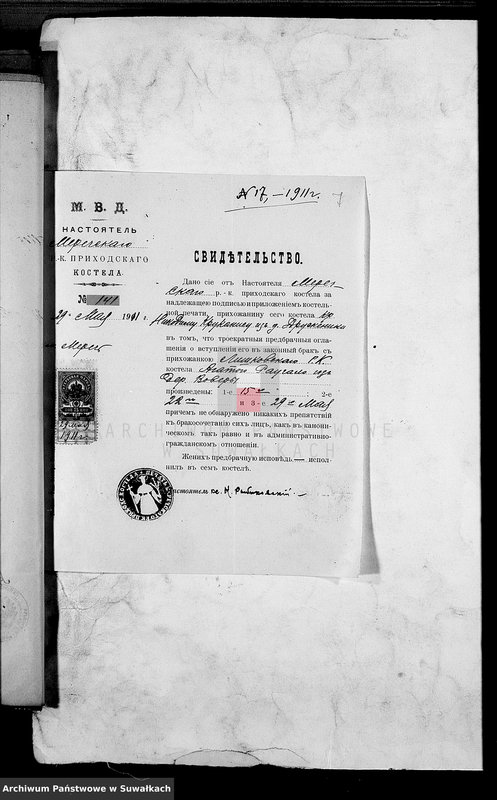 № 17, — 1911 г.
М. В. Д.
НАСТОЯТЕЛЬ
Меречскаго
Р.-К. ПРИХОДСКАГО
КОСТЕЛА.
№ 141
29 Мая 1911 г.
Мереч
СВИДѢТЕЛЬСТВО.
Дано сіе отъ Настоятеля Мереч-
скаго р.-к. приходскаго костела за
надлежащею подписью и приложеніемъ костель-
ной печати, прихожанину сего костела
изъ д.
въ томъ, что троекратныя предбрачныя огла-
шенія о вступленіи его въ законный бракъ съ
прихожанкою Лишковскаго Р.К.
костела Агатою изъ
дер. Воверы
произведены: 1-е 15-го 2-е
22-го и 3-е 29-го Мая
причемъ не обнаружено никакихъ препятствій
къ бракосочетанію сихъ лицъ, какъ въ канони-
ческомъ такъ равно и въ административно-
гражданскомъ отношеніи.
Женихъ предбрачную исповѣдь — испол-
нилъ въ семъ костелѣ.
Настоятель кс.
29 Мая
1911 г.
ARCHIWUM PAŃSTWOWE
W SUWAŁKACH
Archiwum Państwowe w Suwałkach